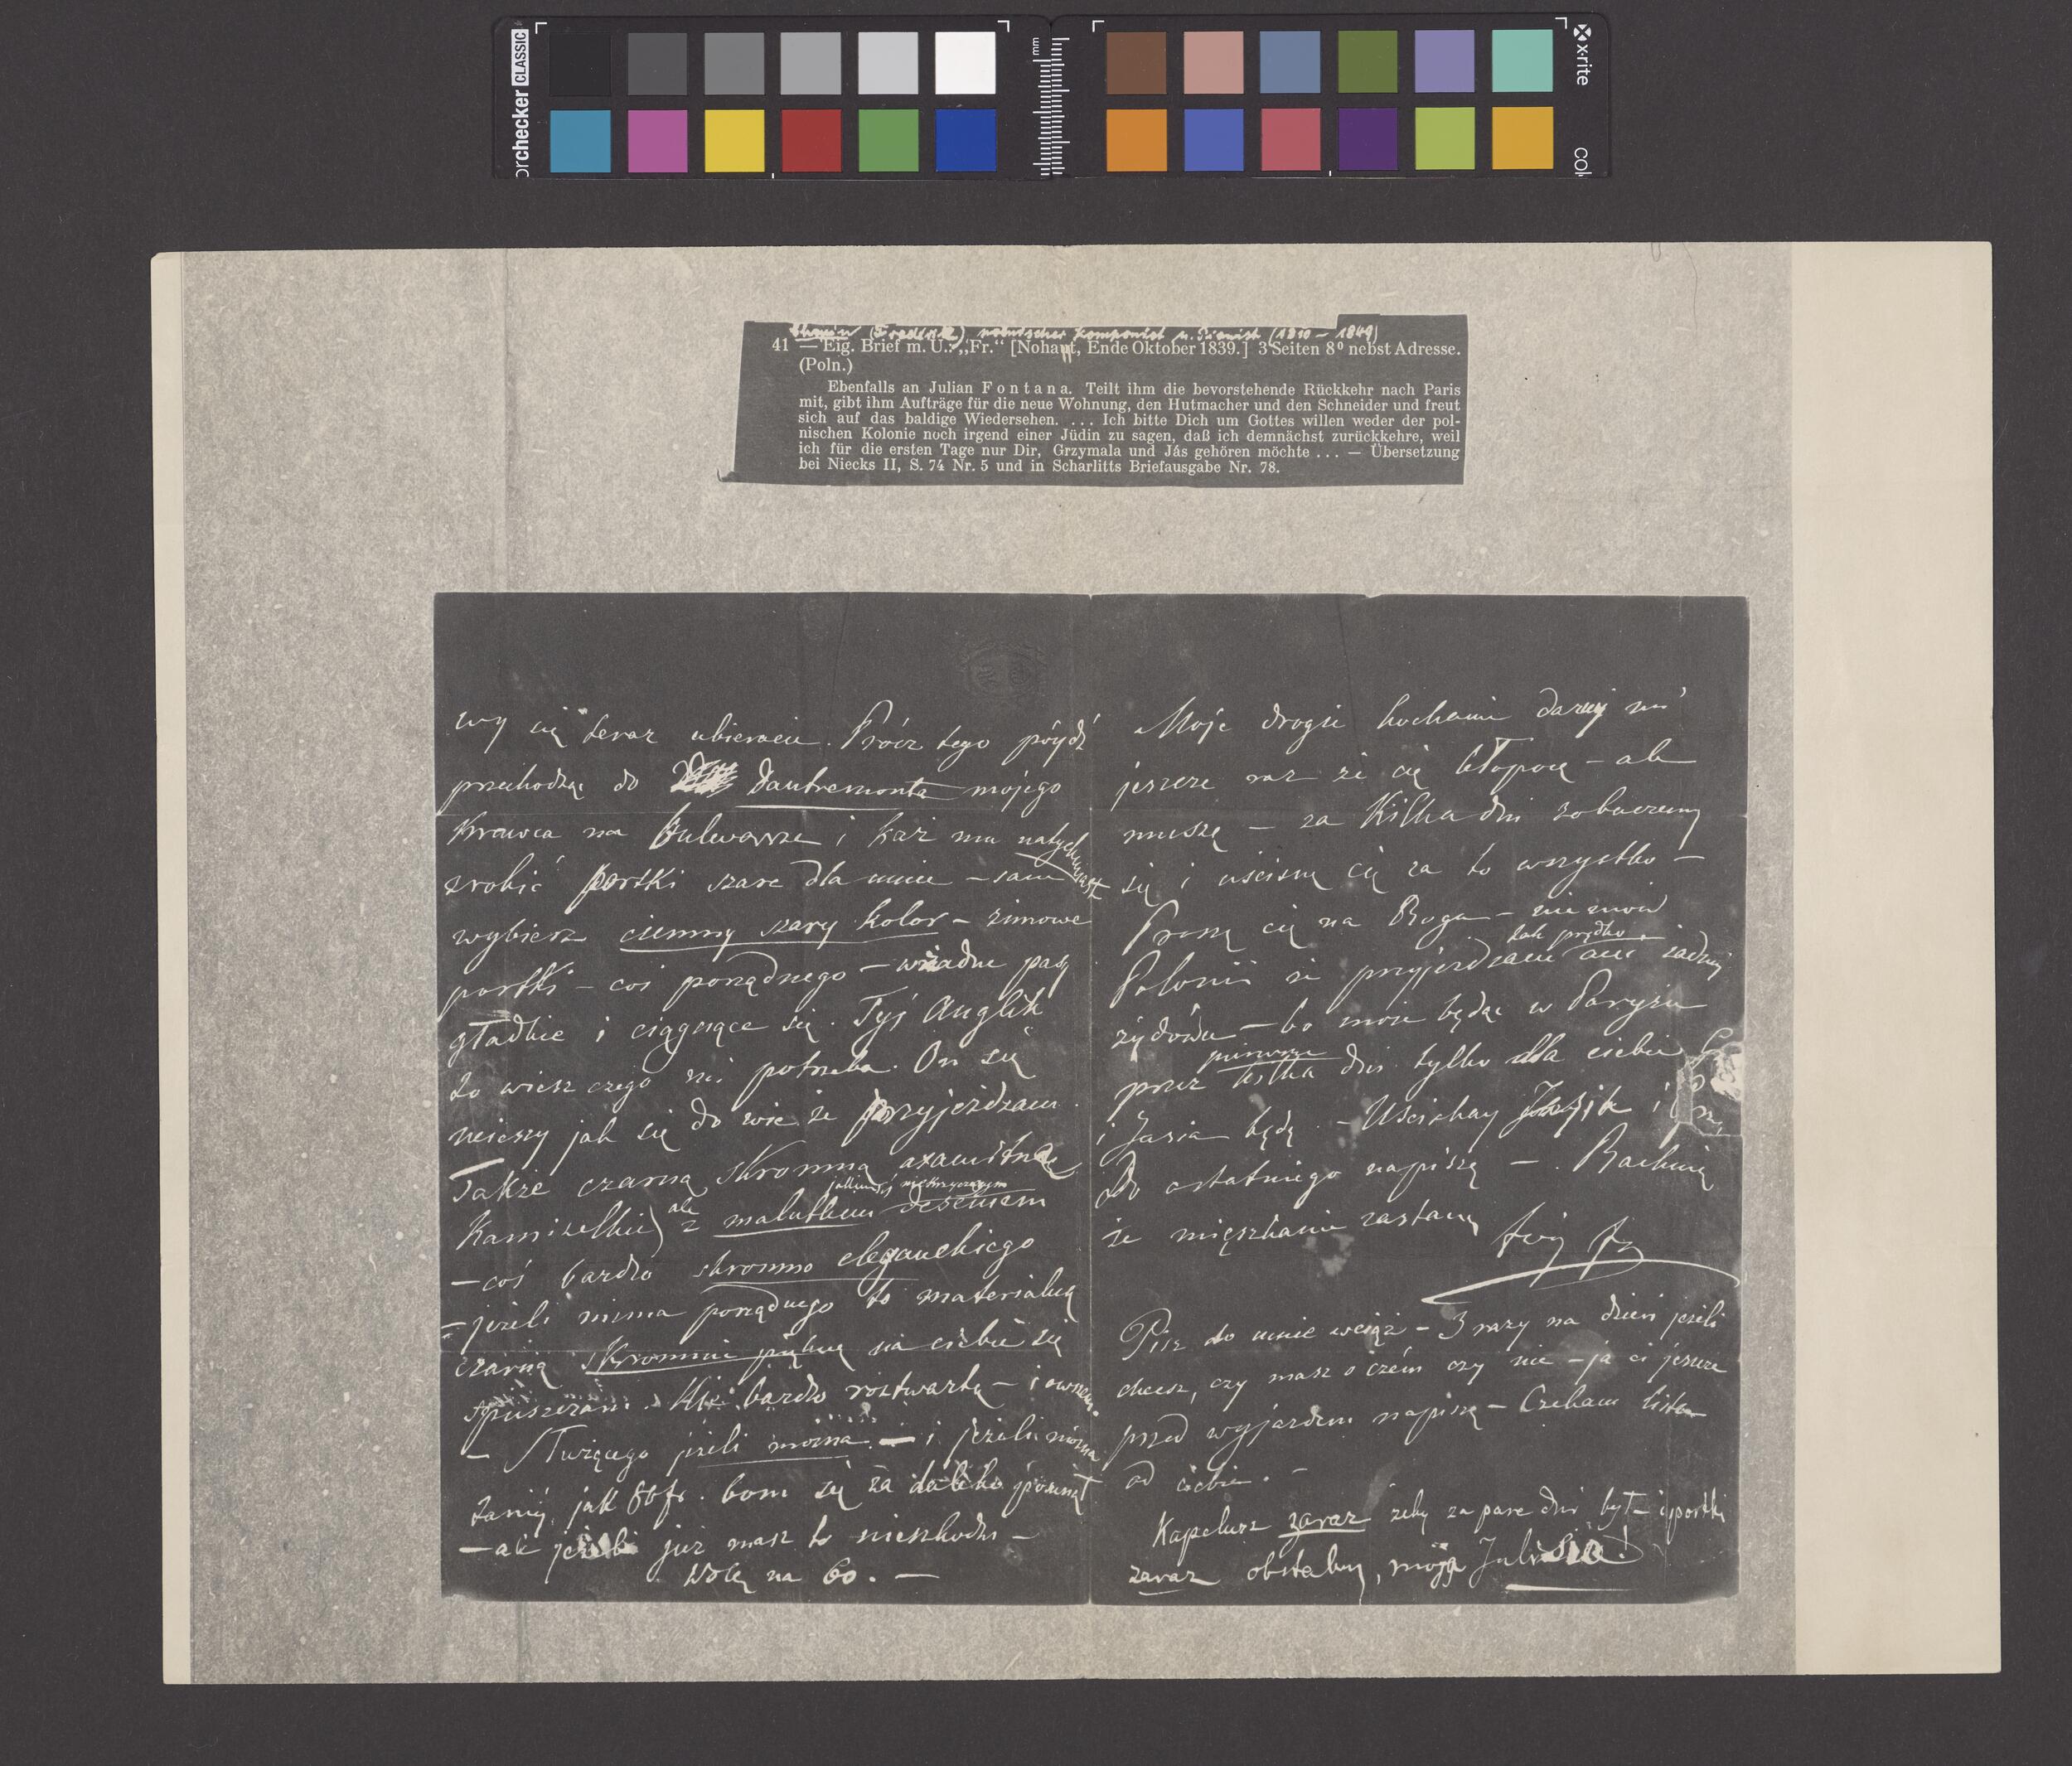 orchecker CLASSIC
mm
x-rite
COL
Chopin (Frederik) polnischer Komponist u. Pianist (1810 – 1849)
41 — Eig. Brief m. U.: „Fr.“ [Nohant, Ende Oktober 1839.] 3 Seiten 8⁰ nebst Adresse.
(Poln.)
Ebenfalls an Julian Fontana. Teilt ihm die bevorstehende Rückkehr nach Paris
mit, gibt ihm Aufträge für die neue Wohnung, den Hutmacher und den Schneider und freut
sich auf das baldige Wiedersehen. ... Ich bitte Dich um Gottes willen weder der pol-
nischen Kolonie noch irgend einer Jüdin zu sagen, daß ich demnächst zurückkehre, weil
ich für die ersten Tage nur Dir, Grzymala und Jás gehören möchte ... — Übersetzung
bei Niecks II, S. 74 Nr. 5 und in Scharlitts Briefausgabe Nr. 78.
wy się teraz ubieracie. Prócz tego pójdź
przechodząc do Dautremonta mojego
Krawca na Bulwarze i każ mu natychmiast
zrobić portki szare dla mnie – sam
wybierz ciemny szary kolor – zimowe
portki – coś porządnego – w żadne pasy
gładkie i ciągnące się. Tyś Anglik
to wiesz czego mi potrzeba. On się
ucieszy jak się do wie że przyjeżdzam.
Także czarną skromną axamitną
Kamizelkę) ale z malutkim jakimsiś deseniem
– coś bardzo skromno eleganckiego
– jeżeli nima porządnego to materialną
czarną skromnie piękną na ciebie się
spuszczam. Nie bardzo roztwartą – i owszem.
– Służącego jeżeli można. – i jeżeli można
taniéj jak 80 fr. bom się za daleko posunął
– ale jeżeli już masz to nieszkodzi –
Wolę na 60. –
Moje drogie kochanie daruj mi
jeszcze raz że cię kłopocę – ale
muszę – za Kilka dni zobaczemy
się i uścisnę cię za to wszystko –
Proszę cię na Boga – nie mów
Polonii że przyjeżdzam tak prędko ani żadnéj
żydówce – bo może będąc w Paryżu
przez pierwsze kilka dni tylko dla ciebie
i Jasia będę. – Uściskaj i
Do ostatniego napiszę –. Rachuję
że mięszkanie zastanę
twój Fr
Pisz do mnie wciąż – 3 razy na dzień jeżeli
chcesz, czy masz o czém czy nie – ja ci jeszcze
przed wyjazdem napiszę – Czekam listu
od ciebie. –
Kapelusz zaraz żeby za pare dni był – i portki
zaraz obstaluj, moja Julisia!